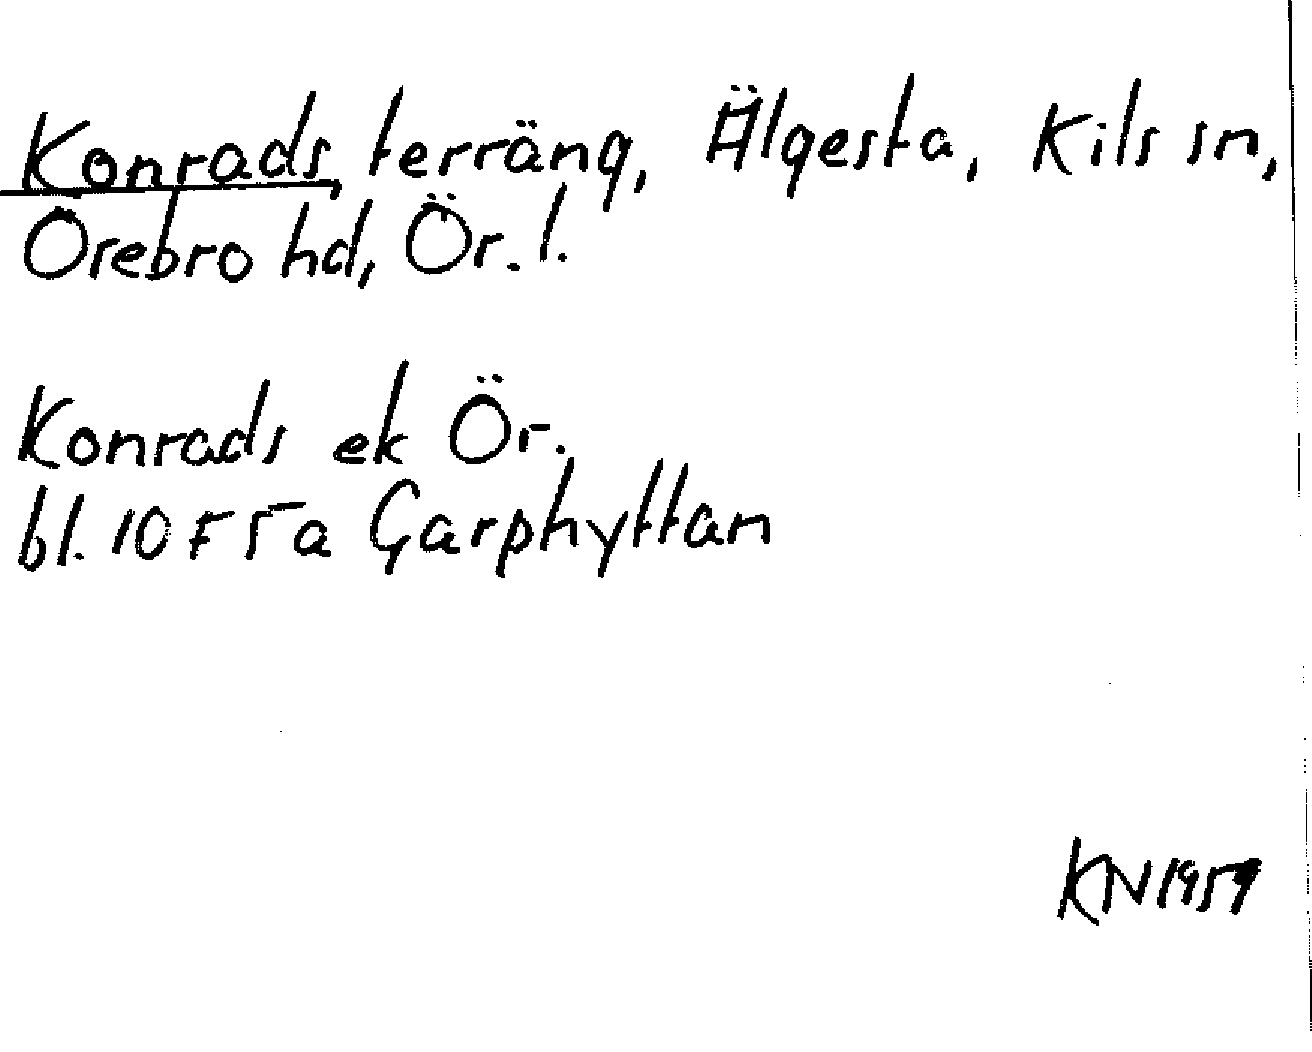 Konrads, terräng, Älgesta, Kils sn,
Örebro hd, Ör. l.
Konrads ek Ör.
bl. 10 F 5 a Garphyttan
KN 1959